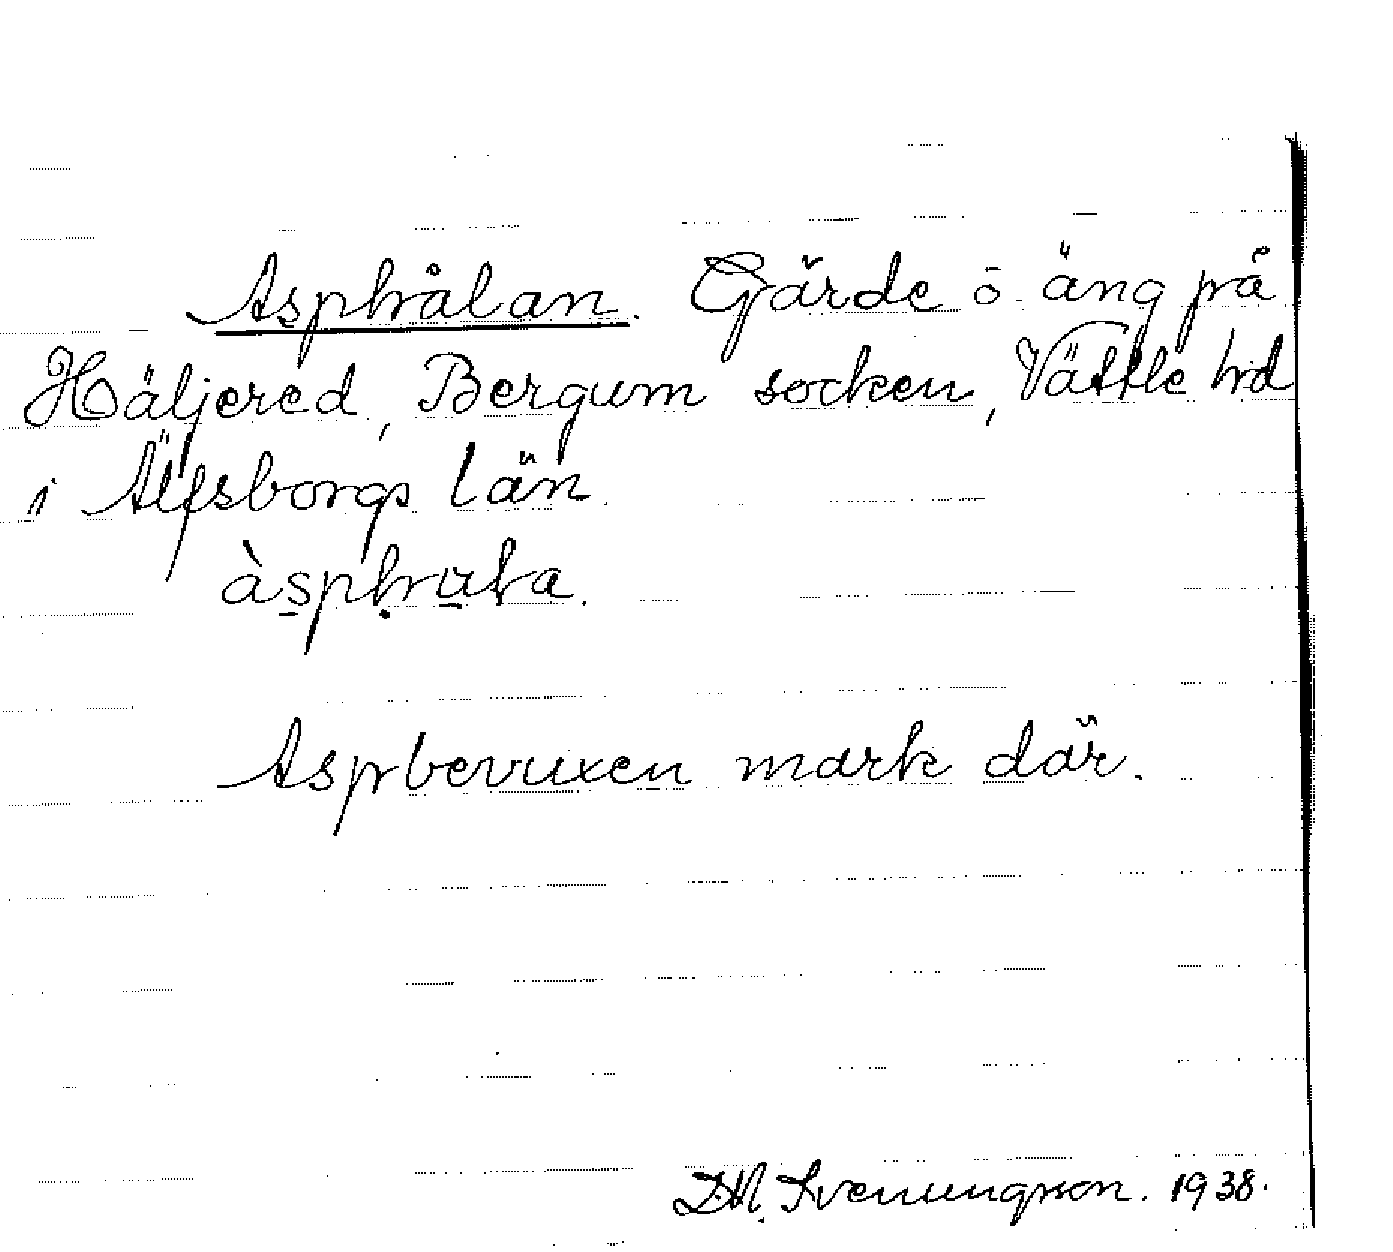 Asphålan. Gärde o äng på
Häljered, Bergum socken, Vättle hd
i Älfsborgs län.
àsphula.
Aspbevuxen mark där.
D.M. Svenungsson. 1938.